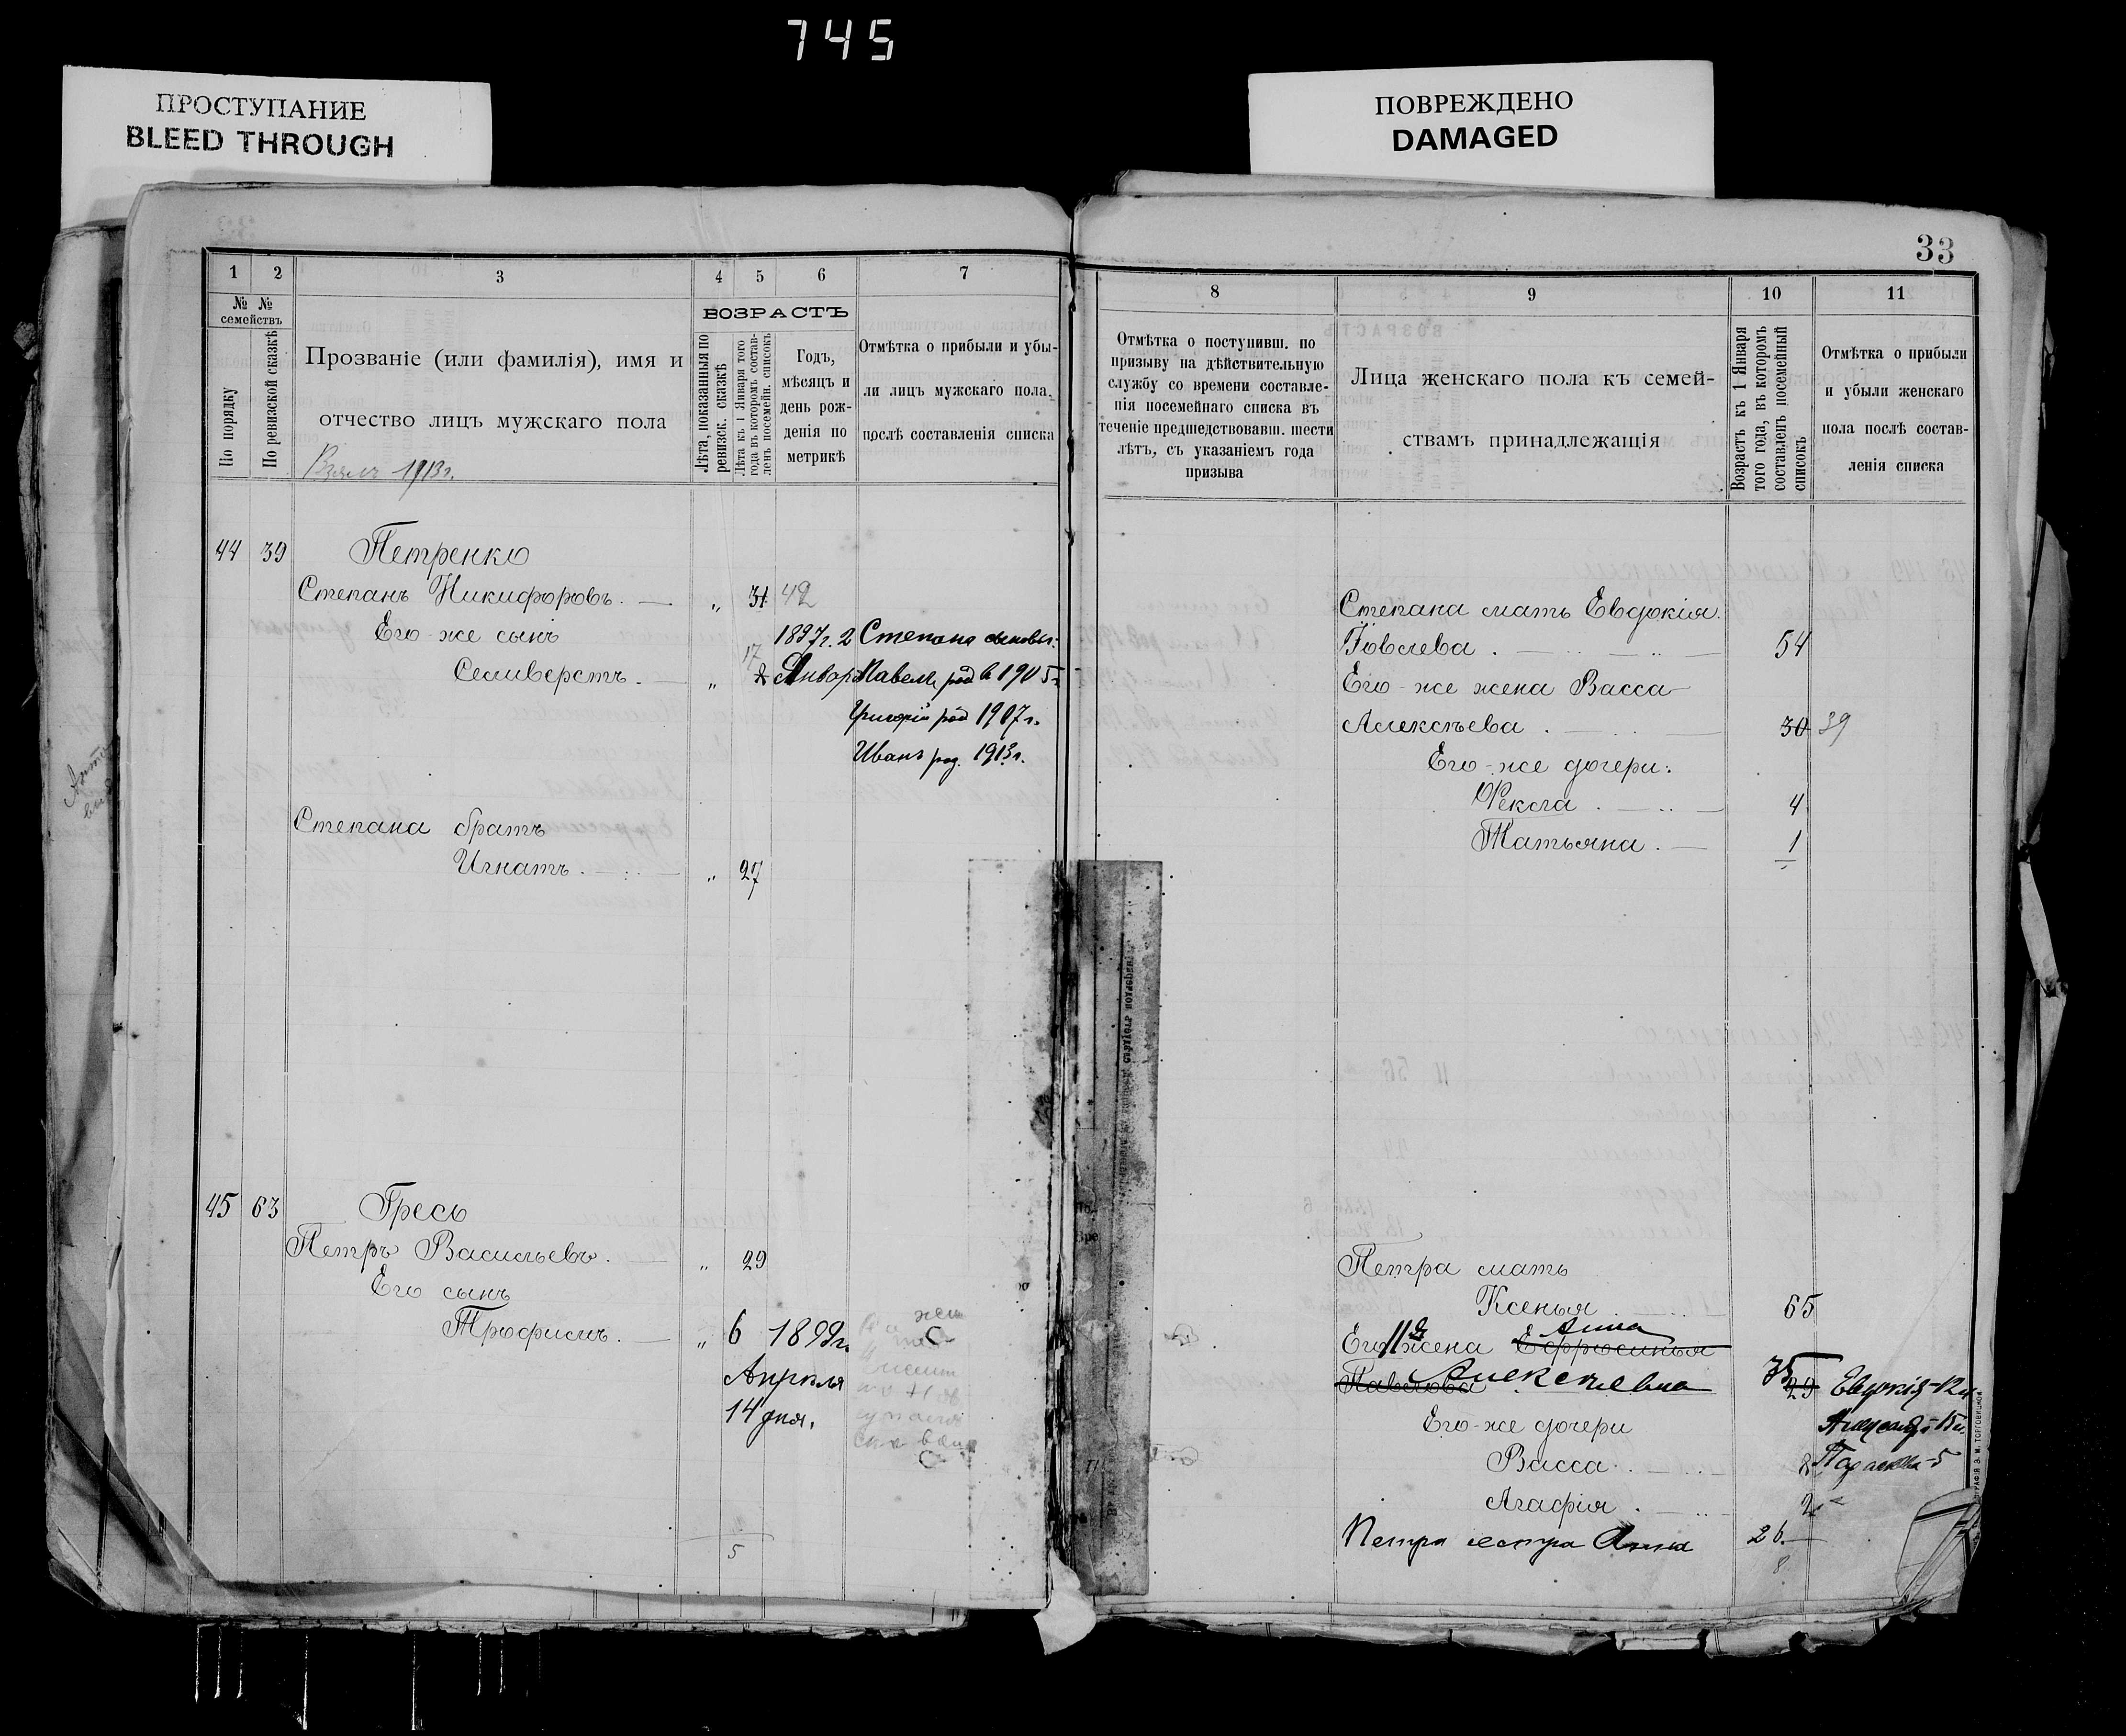 745
ПРОСТУПАНИЕ
BLEED THROUGH
ПОВРЕЖДЕНО
DAMAGED
33
1 2 3 4 5 6 7
№ №
семействъ
По порядку
По ревизской сказкѣ
Прозваніе (или фамилія), имя и
отчество лицъ мужскаго пола
1913г.
ВОЗРАСТЪ
Лѣта, показанныя по
ревизск. сказкѣ
Лѣта къ 1 Января того
года въ которомъ состав-
ленъ посемейн. списокъ
Годъ,
мѣсяцъ и
день рож-
денія по
метрикѣ
Отмѣтка о прибыли и убы-
ли лицъ мужскаго пола
послѣ составленія списка
44 39 Петренко
Степанъ Никифоровъ. „ 31 42
Его же сынъ 1897г. 2 Степана сыновья:
17
Селиверстъ. „ 8 Января Павелъ род в 1905г
Григорій род 1907г.
Иванъ род. 1913г.
Степана братъ
Игнатъ. „ 27
45 63 Гресь
Петръ Васильевъ. „ 29
Его сынъ
Трофимъ. „ 6 1899г.
Апрѣля
14 дня.
5
8 9 10 11
Отмѣтка о поступивш. по
призыву на дѣйствительную
службу со времени составле-
нія посемейнаго списка въ
теченіе предшедствовавш. шести
лѣтъ, съ указаніемъ года
призыва
Лица женскаго пола къ семей-
ствамъ принадлежащія
Возрастъ къ 1 Января
того года, въ которомъ
составленъ посемейный
списокъ
Отмѣтка о прибыли
и убыли женскаго
пола послѣ состав-
ленія списка
Степана мать Евдокія
Іовлева. 54
Его-же жена Васса
Алексѣева. 30 39
Его-же дочери:
Фекла. 4
Татьяна. 1
Петра мать
Ксенья. 65
Анна
Его II жена Ефросинья
Павлова Алексѣевна 35 29 Евдокія-12
Его-же дочери Александ-15
Васса. 8 Параскева-5
Агафія. 2
Петра сестра Анна 26.
8